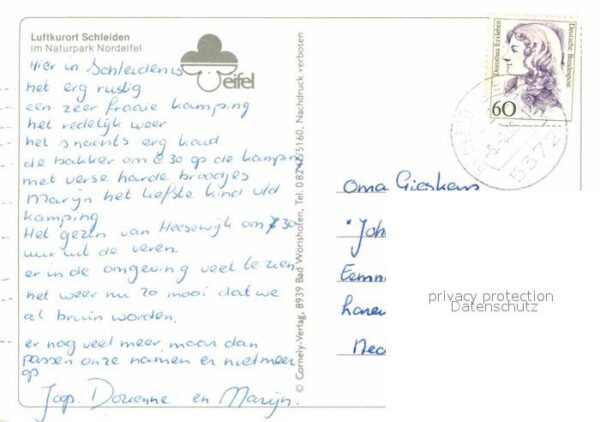 Luftkurort Schleiden
im Naturpark Nordeifel
eifel
Hier in Schleiden is
het erg rustig
een zeer fraaie kamping
het redelijk weer
het s'nachts erg koud.
de bakker om 8.30 op de kamping
met verse harde broodjes
Marijn het liefste kind v/d
kamping
Het gezin van Heeswijk om 7.30
uur uit de veren.
er in de omgeving veel te zien
het weer nu zo mooi dat we
al bruin worden.
er nog veel meer, maar dan
passen onze namen er niet meer
op
Jop. Dorienne en Marijn.
© Cornely-Verlag, 8939 Bad Wörishofen, Tel. 08247/5160, Nachdruck verboten
Dorothea Erxleben
Deutsche Bundespost
60
5372
Oma Gieskens
"Joh
Eemn
Laren
Ned
privacy protection
Datenschutz